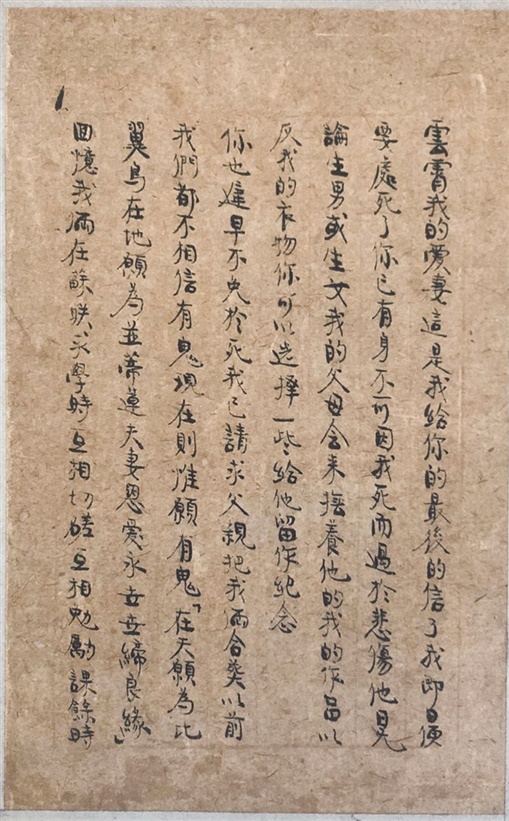 雲霄我的愛妻這是我給你的最後的信了我即日便
要處死了你已有身不可因我死而過於悲傷他日无
論生男或生女我的父母會來撫養他的我的作品以
及我的衣物你可以选擇一些給他留作紀念
你也遲早不免於死我已請求父親把我俩合葬以前
我們都不相信有鬼現在則惟願有鬼「在天願為比
翼鸟在地願為並蒂蓮夫妻恩愛永世世締良緣」
回憶我俩在蘇联求學時互相切磋互相勉勵課餘時